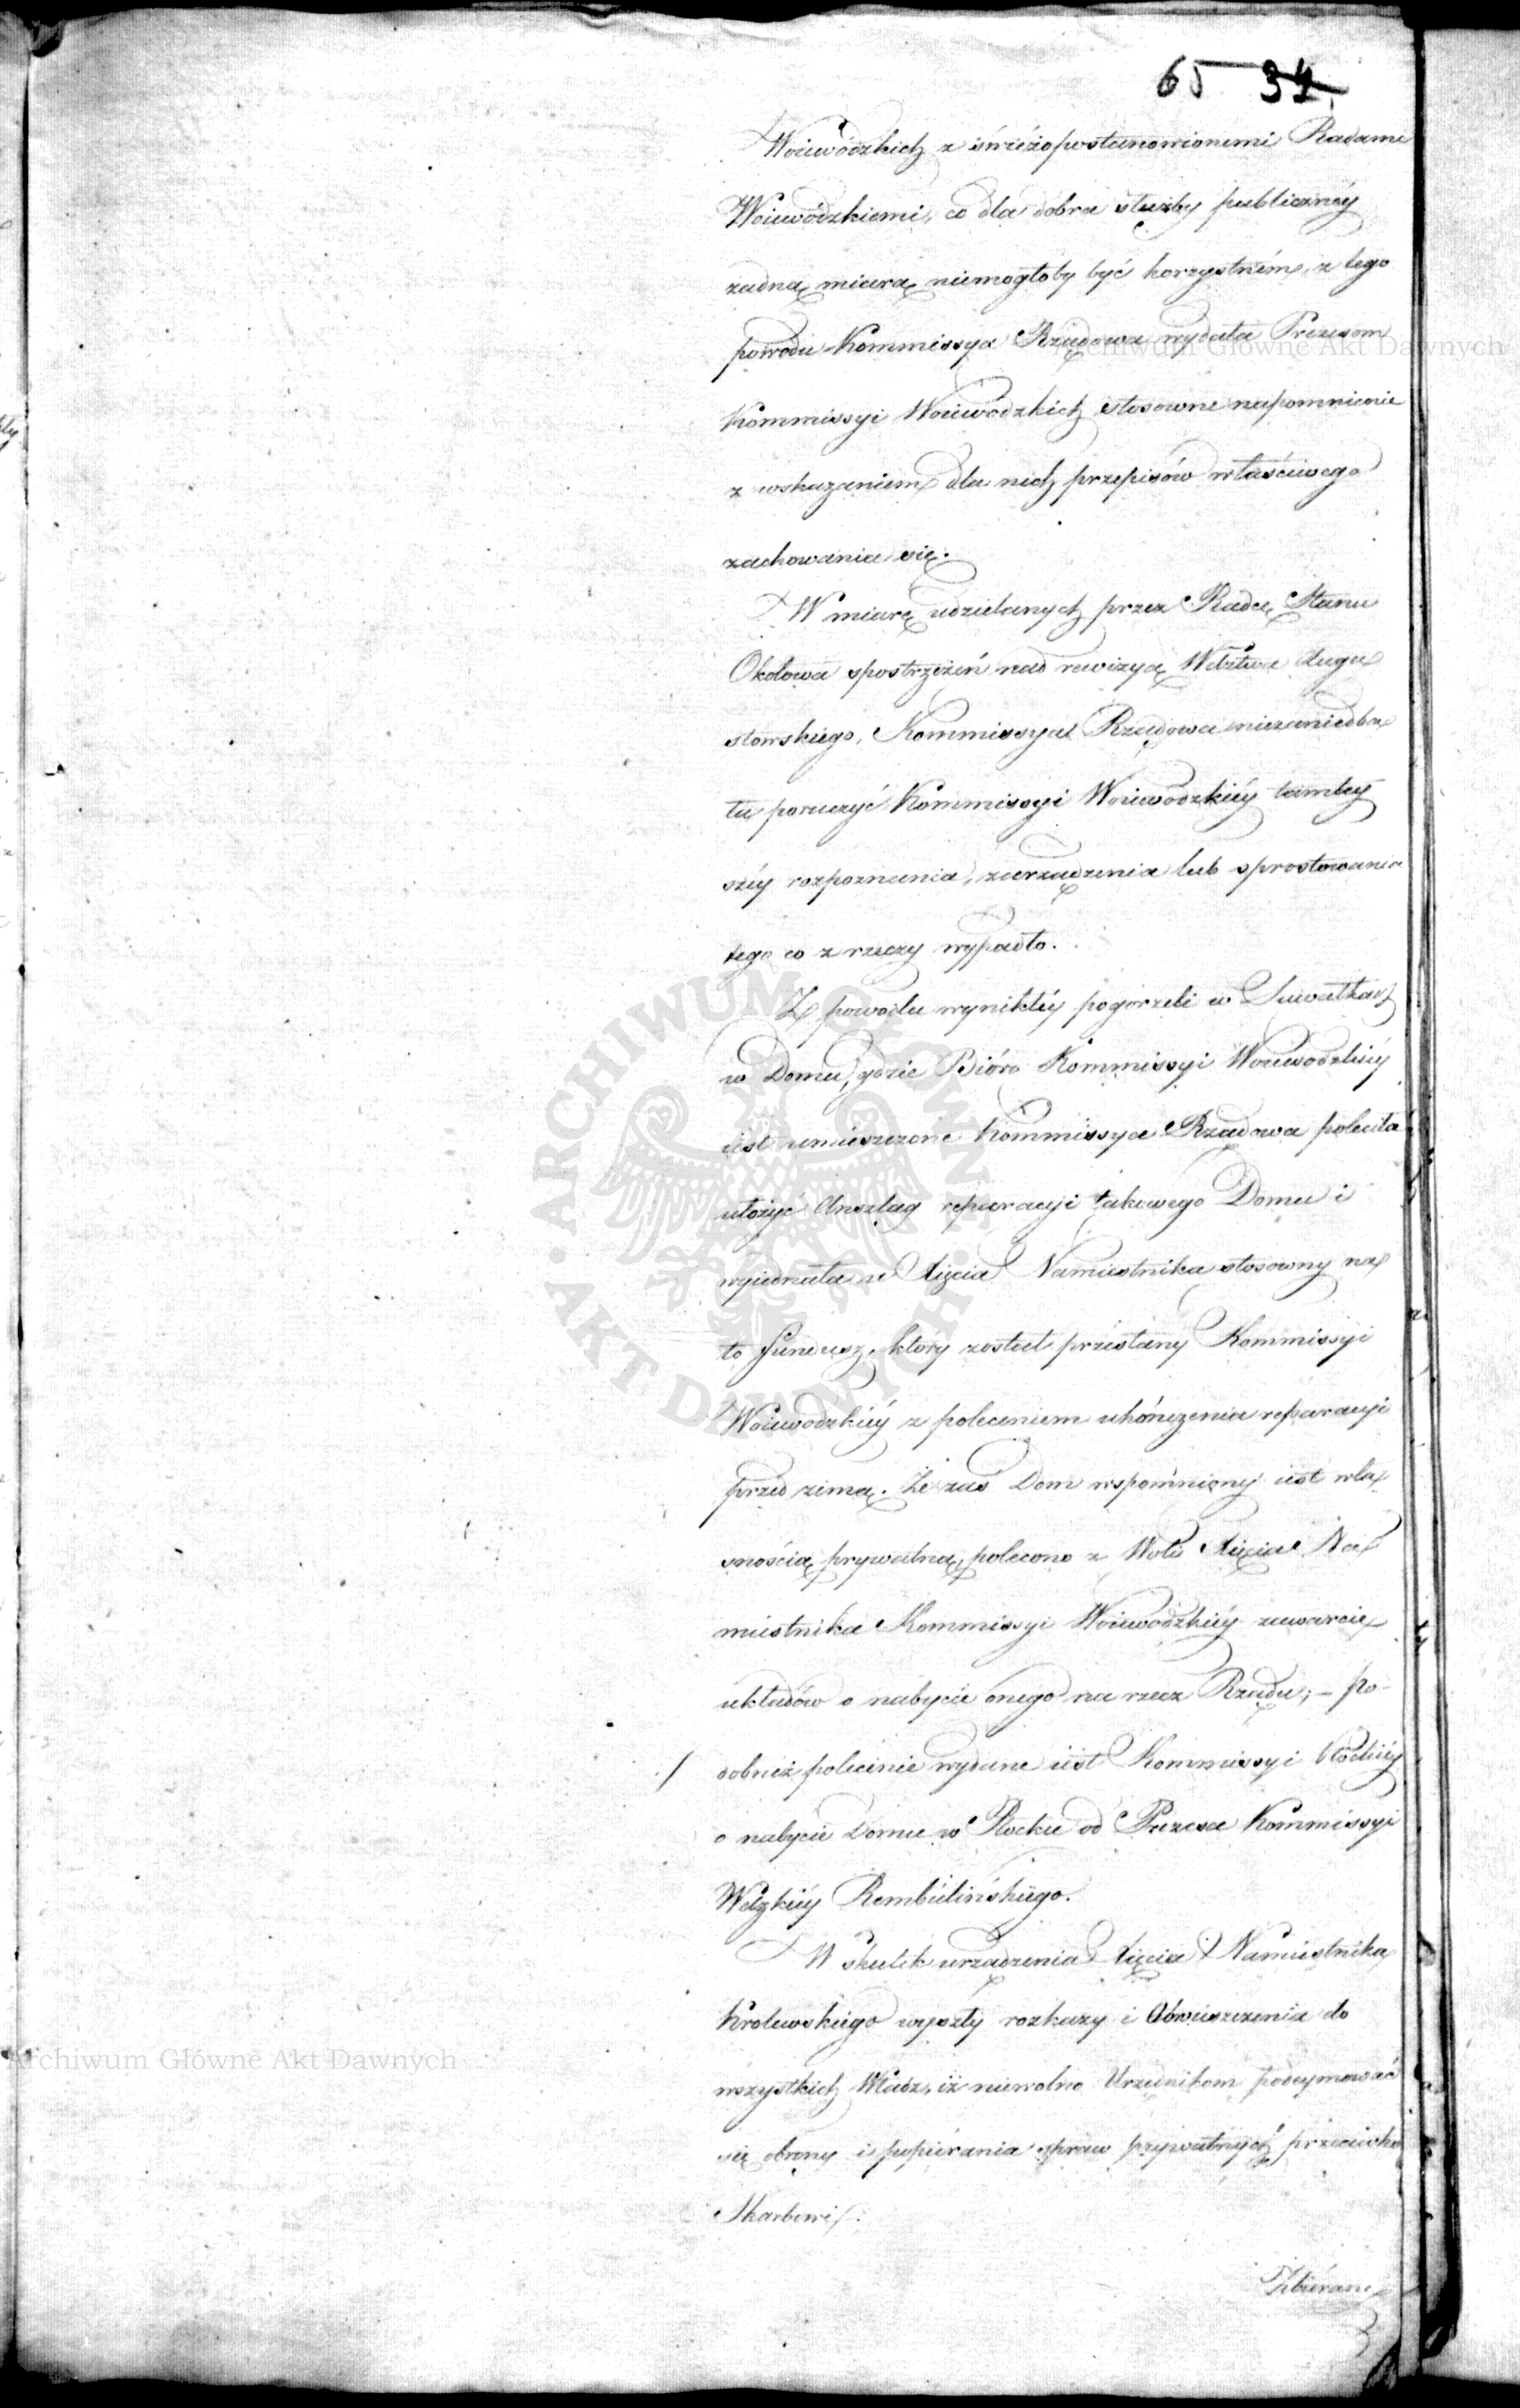 65 34
Woiewódzkich z świéżopostanowionemi Radame
Woiewódzkiemi, co dla dobra służby publicznéy
żadną miarą niemogłoby być korzystném, z tego
powodu Kommissya Rządowa wydała Prezesom
Kommissyi Woiewódzkich stosowne napomnienie
z wskazaniem dla nich przepisów właściwego
zachowania się.
W miarę udzielanych przez Radcę Stanu
Okołowa spostrzeżeń nad rewizyą Wdztwa Augu
stowskiego, Kommissya Rządowa niezaniedba
ła poruczyć Kommissyi Woiewódzkiéy tamtey
széy rozpoznania, zarządzenia lub sprostowania
tego co z rzeczy wypadło.
Z powodu wynikłéy pogorzeli w Suwałkach
w Domu, gdzie Bióro Kommissyi Woiewodzkiéy
iest umieszczone Kommissya Rządowa poleciła
ułożyć Anszlag reparacyi takowego Domu i
wyiednała u Xięcia Namiestnika stosowny na
to fundusz, który został przesłany Kommissyi
Woiewodzkiéy z poleceniem ukończenia reparacyi
przed zimą. Że zaś Dom wspomniony iest wła
snością prywatną, polecono z Woli Xięcia Na
miestnika Kommissyi Woiewódzkiéy zawarcie
układów o nabycie onego na rzecz Rządu; – po-
dobnież polecenie wydane iest Kommissyi Płockiéy
o nabycie Domu w Płocku od Prezesa Kommissyi
Wdzkiéy Rembielińskiego.
W skutek urządzenia Xięcia Namiestnika
Królewskiego wyszły rozkazy i Obwieszczenia do
wszystkich Władz, iż niewolno Urzędnikom podeymować
się obrony i popiérania spraw prywatnych przeciwko
Skarbowi.
Zbiérane
Archiwum Główne Akt Dawnych
Archiwum Główne Akt Dawnych
ARCHIWUM GŁÓWNE AKT DAWNYCH